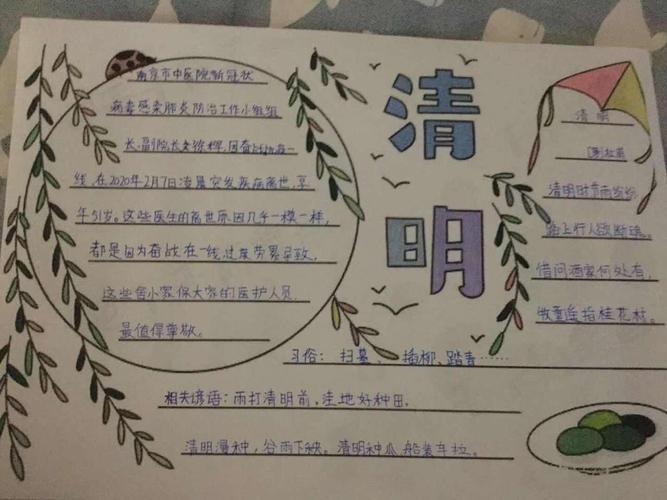 清明
南京市中医院新冠状
病毒感染肺炎防治工作小组组
长、副院长徐辉,因奋战在一
线,在2020年2月7日凌晨突发疾病离世,享
年51岁。这些医生的离世原因几乎一模一样,
都是因为奋战在一线,过度劳累导致,
这些舍小家保大家的医护人员,
最值得尊敬。
清明
杜
清明时节雨纷纷
路上行人欲断魂。
借问酒家何处有,
牧童遥指桂花村。
习俗:扫墓、插柳、踏青……
相关谚语:雨打清明前,洼地好种田。
清明浸种,谷雨下秧。清明种瓜,船装车拉。